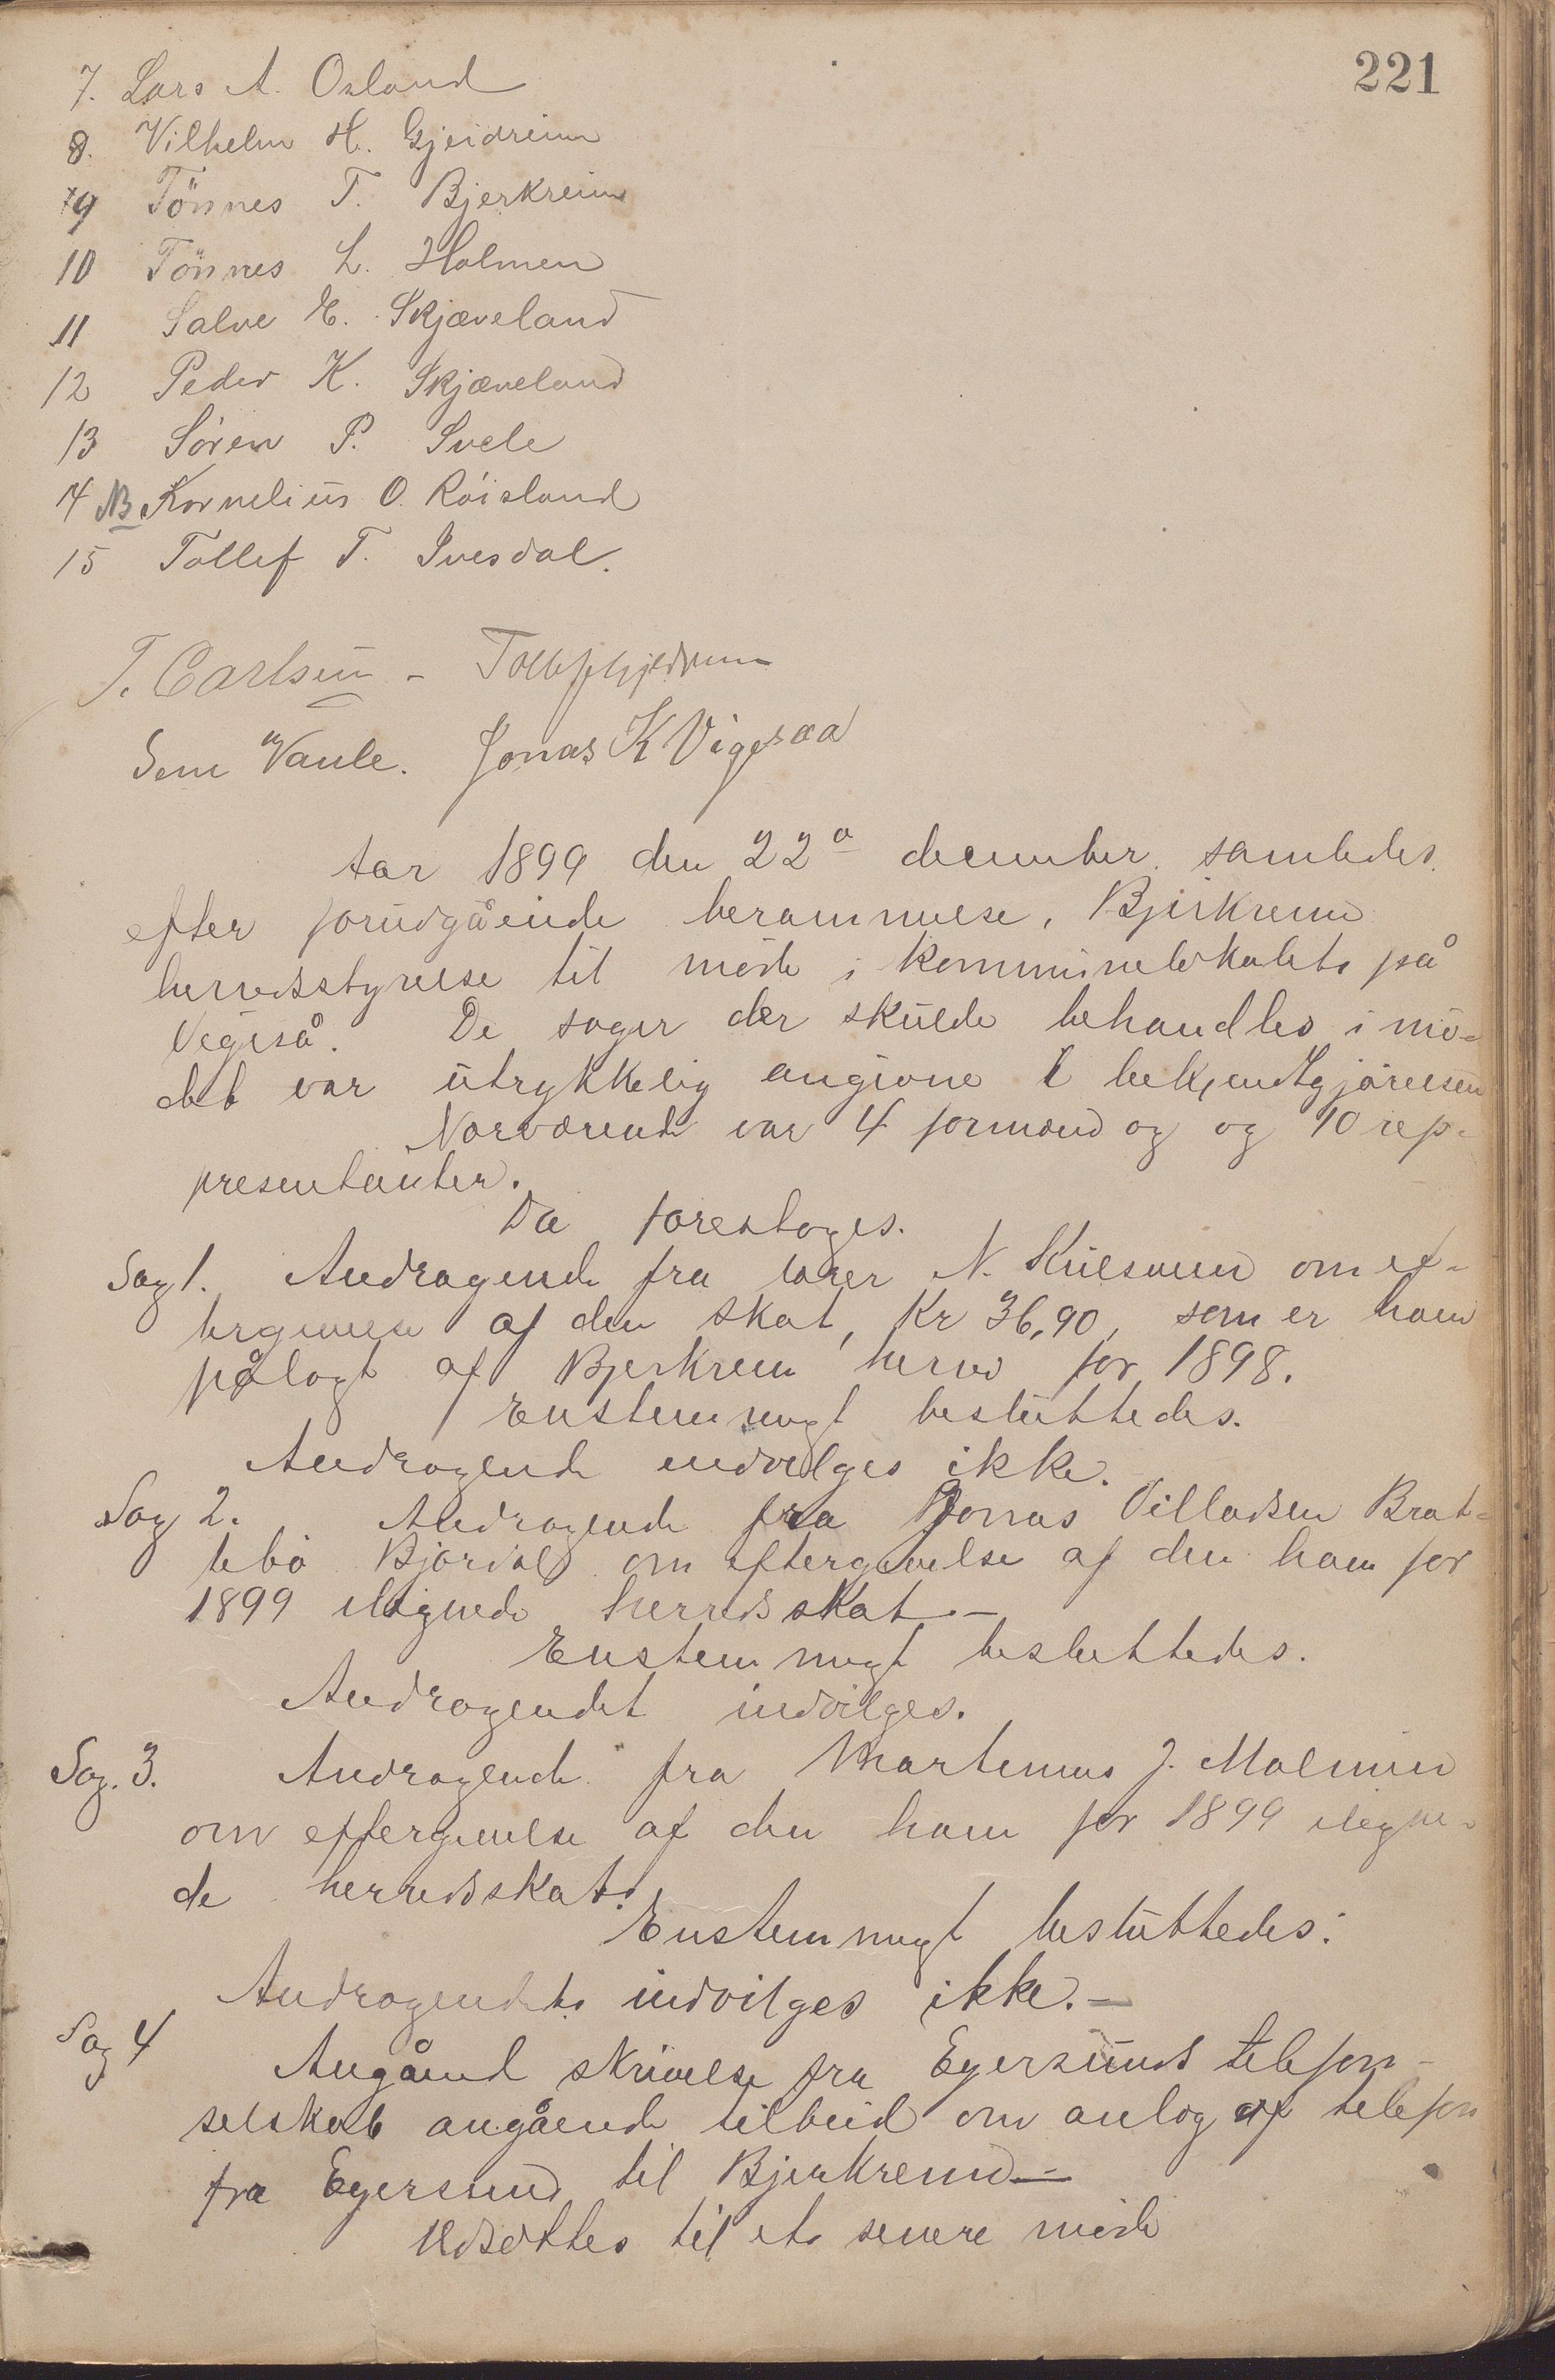 221
7. Lars A. Osland
8. Vilhelm H. Gjeidreim
9 Tönnes T. Bjerkreim
10 Tönnes L. Holmen
11 Salve E. Skjæveland
12 Peder K. Skjæveland
13 Sören P. Svele
14 NB Kornelius O. Röisland
15 Tollef T. Ivesdal.
T. Carlsen - Tollef Gjedrem
Sem Vaule. Jonas K Vigesaa
Aar 1899 den 22a december samledes
efter forudgående berammelse, Bjerkrem
herredsstyrelse til möde i kommunelokalet på
Vigeså. De sager der skulde behandles i mö-
det var utrykkelig angivne i bekjendtgjörelsen
Nærværende var 4 formænd og og 10 rep-
presentanter.
Da foretoges.
Sag 1. Andragende fra N. om ef-
tergivelse af den skat, Kr 36,90, som er ham
pålagt af Bjerkrem herred for 1898.
Enstemmigt besluttedes.
Andragende indvilges ikke.
Sag 2. Andragende fra Jonas Villadsen Brat-
tebö Bjordal om eftergivelse af den ham for
1899 ilignede herredsskat. -
Enstemmigt besluttedes.
Andragendet indvilges.
Sag. 3. Andragende fra Martinus J. Malmin
om eftergivelse af den ham for 1899 iligne-
de herredsskat.
Enstemmigt besluttedes:
Andragendet indvilges ikke. -
Sag 4 Angående skrivelse fra Egersunds telefon-
selskab angående tilbud om anlæg af telefon
fra Egersund til Bjerkrem -
Udsættes til et senere möde